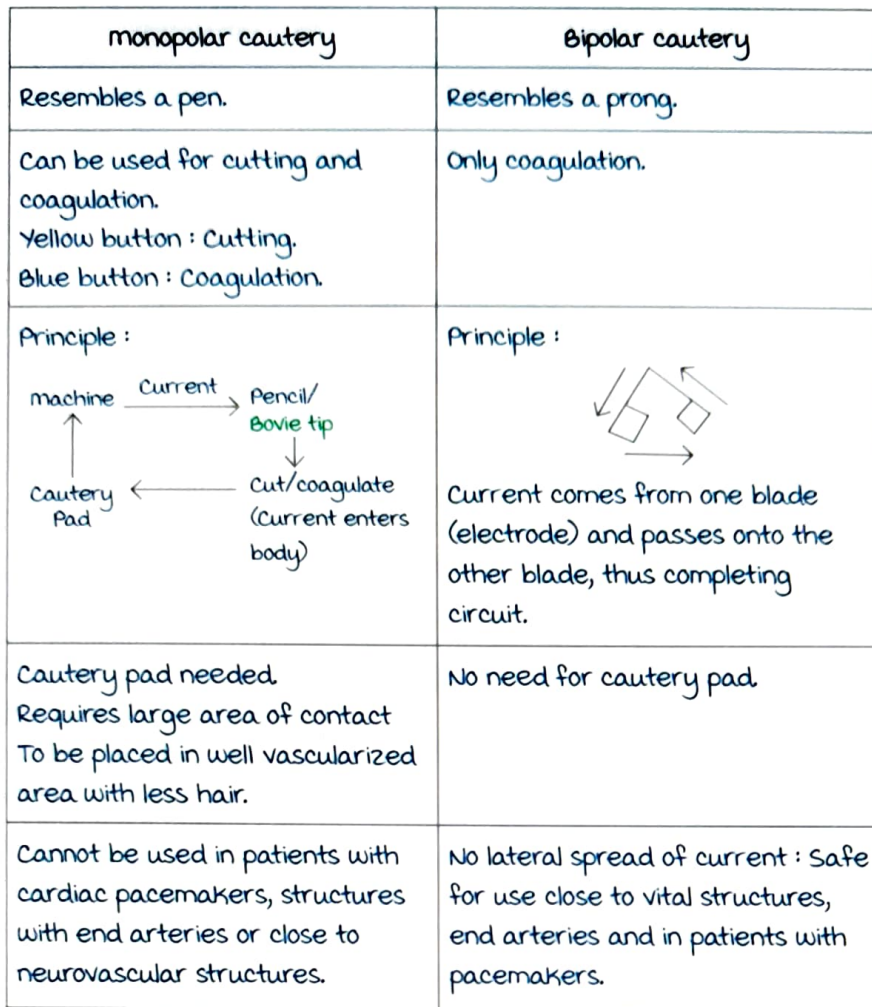 monopolar cautery
Bipolar cautery
Resembles a pen.
Resembles a prong.
Can be used for cutting and
coagulation.
Yellow button : Cutting.
Blue button : Coagulation.
Only coagulation.
Principle :
machine
Current
Pencil/
Bovie tip
Cut/coagulate
(Current enters
body)
Cautery
Pad
Principle :
Current comes from one blade
(electrode) and passes onto the
other blade, thus completing
circuit.
Cautery pad needed
Requires large area of contact
To be placed in well vascularized
area with less hair.
No need for cautery pad
Cannot be used in patients with
cardiac pacemakers, structures
with end arteries or close to
neurovascular structures.
No lateral spread of current : Safe
for use close to vital structures,
end arteries and in patients with
pacemakers.